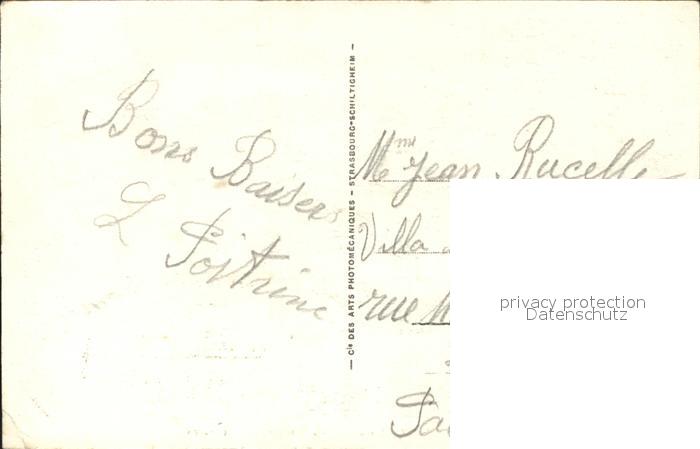 Bons
Baisers
L Poitrine
— Cie DES ARTS PHOTOMÉCANIQUES - STRASBOURG-SCHILTIGHEIM —
Mme Jean Rucelle
Villa
rue
privacy protection
Datenschutz